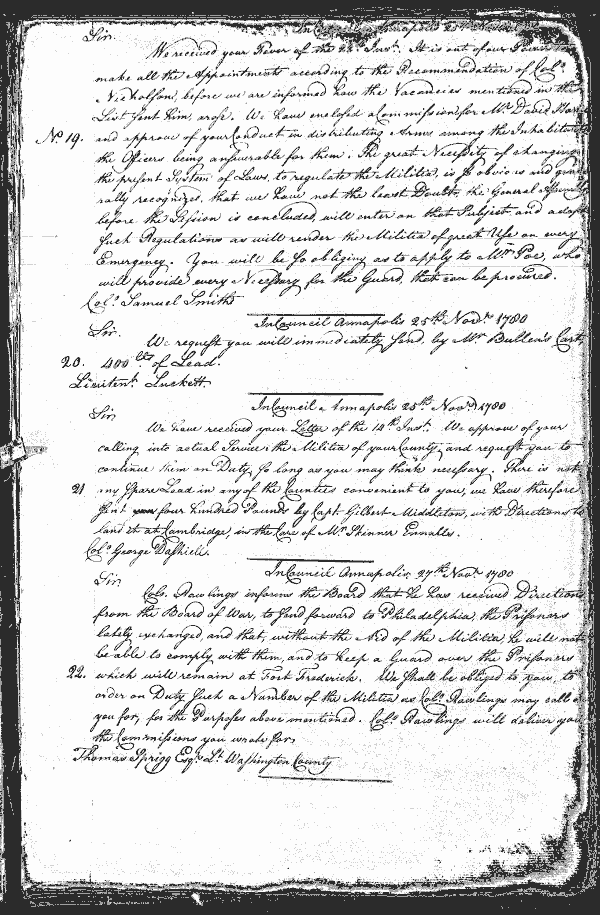 In Council Annapolis 25th Novr
Sir.
We received your Favor of the 22d Inst. It is out of our Power to
make all the Appointments according to the Recommendation of Colo
Nicholson, before we are informed how the Vacancies mentioned in the
List sent him, arose. We have enclosed a Commission for Mr David
No 19. and approve of your Conduct in distributing Arms among the Inhabitants
the Officers being answerable for them. The great Necessity of changing
the present System of Laws, to regulate the Militia, is so obvious and gene
rally recognized, that we have not the least Doubt, the General Assembly
before the Session is concluded, will enter on that Subject, and adopt
such Regulations as will render the Militia of great Use on every
Emergency. You will be so obliging as to apply to Mr Poe, who
will provide every Necessary for the Guard, that can be procured.
Colo Samuel Smith
In Council Annapolis 25th Novr 1780
Sir.
We request you will immediately send, by Mr Bullen's Cart,
20. 400 lbs of Lead.
Lieutent Luckett
In Council Annapolis 25th Novr 1780
Sir
We have received your Letter of the 14th Inst. We approve of your
calling into actual Service the Militia of your County, and request you to
continue them on Duty so long as you may think necessary. There is not
21 any spare Lead in any of the Counties convenient to you, we have therefore
sent you four hundred Pounds by Capt Gilbert Middleton, with Directions to
land it at Cambridge, in the Care of Mr Skinner Ennalls.
Colo George Dashiell.
In Council Annapolis 27th Novr 1780
Sir
Colo. Rawlings informs the Board that he has received Directions
from the Board of War, to send forward to Philadelphia, the Prisoners
lately exchanged, and that, without the Aid of the Militia, he will not
be able to comply with them, and to keep a Guard over the Prisoners
22. which will remain at Fort Frederick. We shall be obliged to you, to
order on Duty such a Number of the Militia as Colo Rawlings may call on
you for, for the Purposes above mentioned. Colo Rawlings will deliver you
the Commissions you wrote for.
Thomas Sprigg Esqr Lt. Washington County